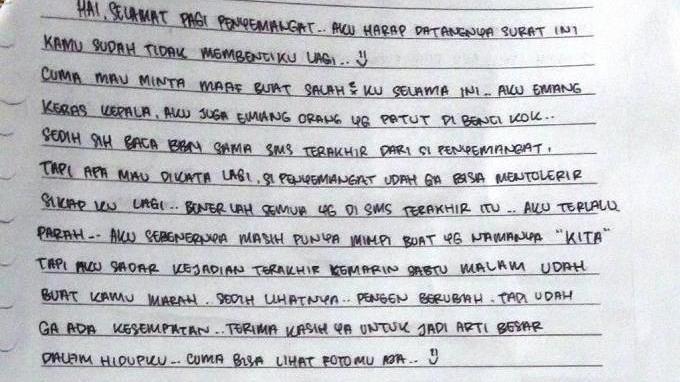 HAI, SELAMAT PAGI PENYEMANGAT.. AKU HARAP DATANGNYA SURAT INI
KAMU SUDAH TIDAK MEMBENCIKU LAGI.. :)
CUMA MAU MINTA MAAF BUAT SALAH² KU SELAMA INI.. AKU EMANG
KERAS KEPALA. AKU JUGA EMANG ORANG YG PATUT DI BENCI KOK..
SEDIH SIH BACA BBM SAMA SMS TERAKHIR DARI SI PENYEMANGAT.
TAPI APA MAU DIKATA LAGI, SI PENYEMANGAT UDAH GA BISA MENTOLERIR
SIKAP KU LAGI.. BENER LAH SEMUA YG DI SMS TERAKHIR ITU.. AKU TERLALU
PARAH.. AKU SEBENERNYA MASIH PUNYA MIMPI BUAT YG NAMANYA "KITA"
TAPI AKU SADAR KEJADIAN TERAKHIR KEMARIN SABTU MALAM UDAH
BUAT KAMU MARAH. SEDIH LIHATNYA.. PENGEN BERUBAH. TAPI UDAH
GA ADA KESEMPATAN.. TERIMA KASIH YA UNTUK JADI ARTI BESAR
DALAM HIDUPKU.. CUMA BISA LIHAT FOTOMU AJA.. :)